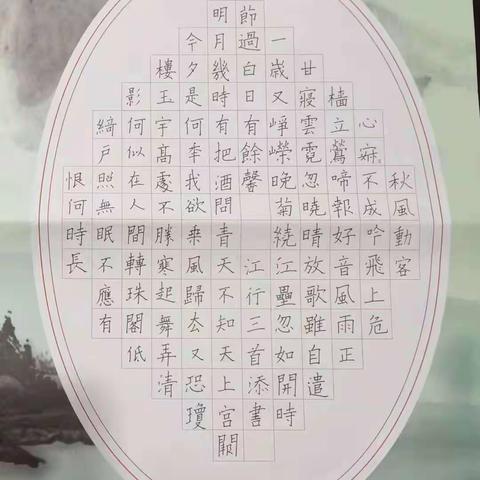 秋風動客
心寐。不成吟飛上危
檣立鶯啼報好音風雨正
甘寢雲霓忽曉晴放歌雖自遣
一歲又崢嶸晚菊繞江壘忽如開時
節過白日有餘馨 江行三首添書
明月幾時有把酒問青天不知天上宮闕
今夕是何年我欲乘風歸去又恐瓊
樓玉宇高處不勝寒起舞弄清
影何似在人間轉珠閣低
綺戶照無眠不應有
恨何時長